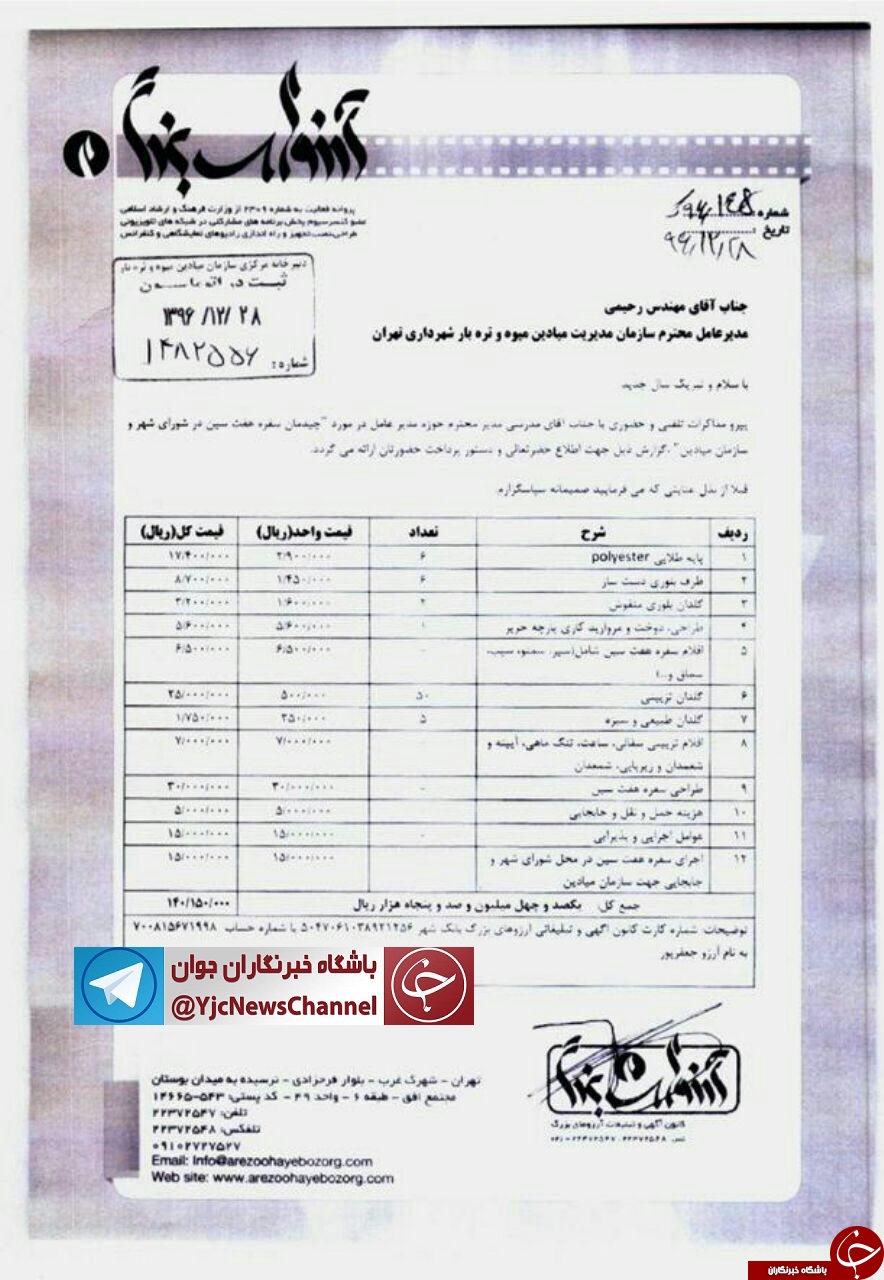 آرزوهای بزرگ
پروانه فعالیت به شماره ۲۳۰۹ از وزارت فرهنگ و ارشاد اسلامی
عضو کنسرسیوم پخش برنامه های مشارکتی در شبکه های تلویزیونی
طراحی،نصب،تجهیز و راه اندازی رادیوهای نمایشگاهی و کنفرانس
شماره: ۹۶/۱۴۵
تاریخ: ۹۶/۱۲/۲۸
دبیرخانه مرکزی سازمان میادین میوه و تره بار
۱۳۹۶/۱۲/۲۸
شماره: ۱۴۸۲۵۵۶
جناب آقای مهندس رحیمی
مدیرعامل محترم سازمان مدیریت میادین میوه و تره بار شهرداری تهران
با سلام و تبریک سال جدید
پیرو مذاکرات تلفنی و حضوری با جناب آقای مدرسی مدیر محترم حوزه مدیر عامل در مورد "چیدمان سفره هفت سین در شورای شهر و
سازمان میادین" ،گزارش ذیل جهت اطلاع حضرتعالی و دستور پرداخت حضورتان ارائه می گردد.
قبلا از بذل عنایتی که می فرمایید صمیمانه سپاسگزارم.
ردیف شرح تعداد قیمت واحد(ریال) قیمت کل(ریال)
۱ پایه طلایی polyester ۶ ۲/۹۰۰/۰۰۰ ۱۷/۴۰۰/۰۰۰
۲ ظرف بلوری دست ساز ۶ ۱/۴۵۰/۰۰۰ ۸/۷۰۰/۰۰۰
۳ گلدان بلوری منقوش ۲ ۱/۶۰۰/۰۰۰ ۳/۲۰۰/۰۰۰
۴ طراحی، دوخت و مروارید کاری پارچه حریر ۱ ۵/۶۰۰/۰۰۰ ۵/۶۰۰/۰۰۰
۵ اقلام سفره هفت سین شامل(سیر، سمنو، سیب، - ۶/۵۰۰/۰۰۰ ۶/۵۰۰/۰۰۰
سماق و..)
۶ گلدان تزیینی ۵۰ ۵۰۰/۰۰۰ ۲۵/۰۰۰/۰۰۰
۷ گلدان طبیعی و سبزه ۵ ۳۵۰/۰۰۰ ۱/۷۵۰/۰۰۰
۸ اقلام تزیینی سفالی، ساعت، تنگ ماهی، آیینه و - ۷/۰۰۰/۰۰۰ ۷/۰۰۰/۰۰۰
شمعدان و زیرپایی، شمعدان
۹ طراحی سفره هفت سین - ۳۰/۰۰۰/۰۰۰ ۳۰/۰۰۰/۰۰۰
۱۰ هزینه حمل و نقل و جابجایی - ۵/۰۰۰/۰۰۰ ۵/۰۰۰/۰۰۰
۱۱ عوامل اجرایی و پذیرایی - ۱۵/۰۰۰/۰۰۰ ۱۵/۰۰۰/۰۰۰
۱۲ اجرای سفره هفت سین در محل شورای شهر و ۱۵/۰۰۰/۰۰۰ ۱۵/۰۰۰/۰۰۰
جابجایی جهت سازمان میادین
جمع کل: یکصد و چهل میلیون و صد و پنجاه هزار ریال ۱۴۰/۱۵۰/۰۰۰
توضیحات: شماره کارت کانون آگهی و تبلیغاتی آرزوهای بزرگ بانک شهر ۵۰۴۷۰۶۱۰۳۸۹۲۱۲۵۶ با شماره حساب ۷۰۰۸۱۵۶۷۱۹۹۸
به نام آرزو جعفرپور
باشگاه خبرنگاران جوان
@YjcNewsChannel
آرزوهای بزرگ
کانون آگهی و تبلیغات آرزوهای بزرگ
تهران - شهرک غرب - بلوار فرحزادی - نرسیده به میدان بوستان
مجتمع افق - طبقه ۶ - واحد ۴۹ - کد پستی: ۵۴۳-۱۴۶۶۵
تلفن: ۲۲۳۷۲۵۴۷
تلفکس: ۲۲۳۷۲۵۴۸
۰۹۱۰۲۷۲۷۵۲۷
Email: Info@arezoohayebozorg.com
Web site: www.arezoohayebozorg.com
باشگاه خبرنگاران